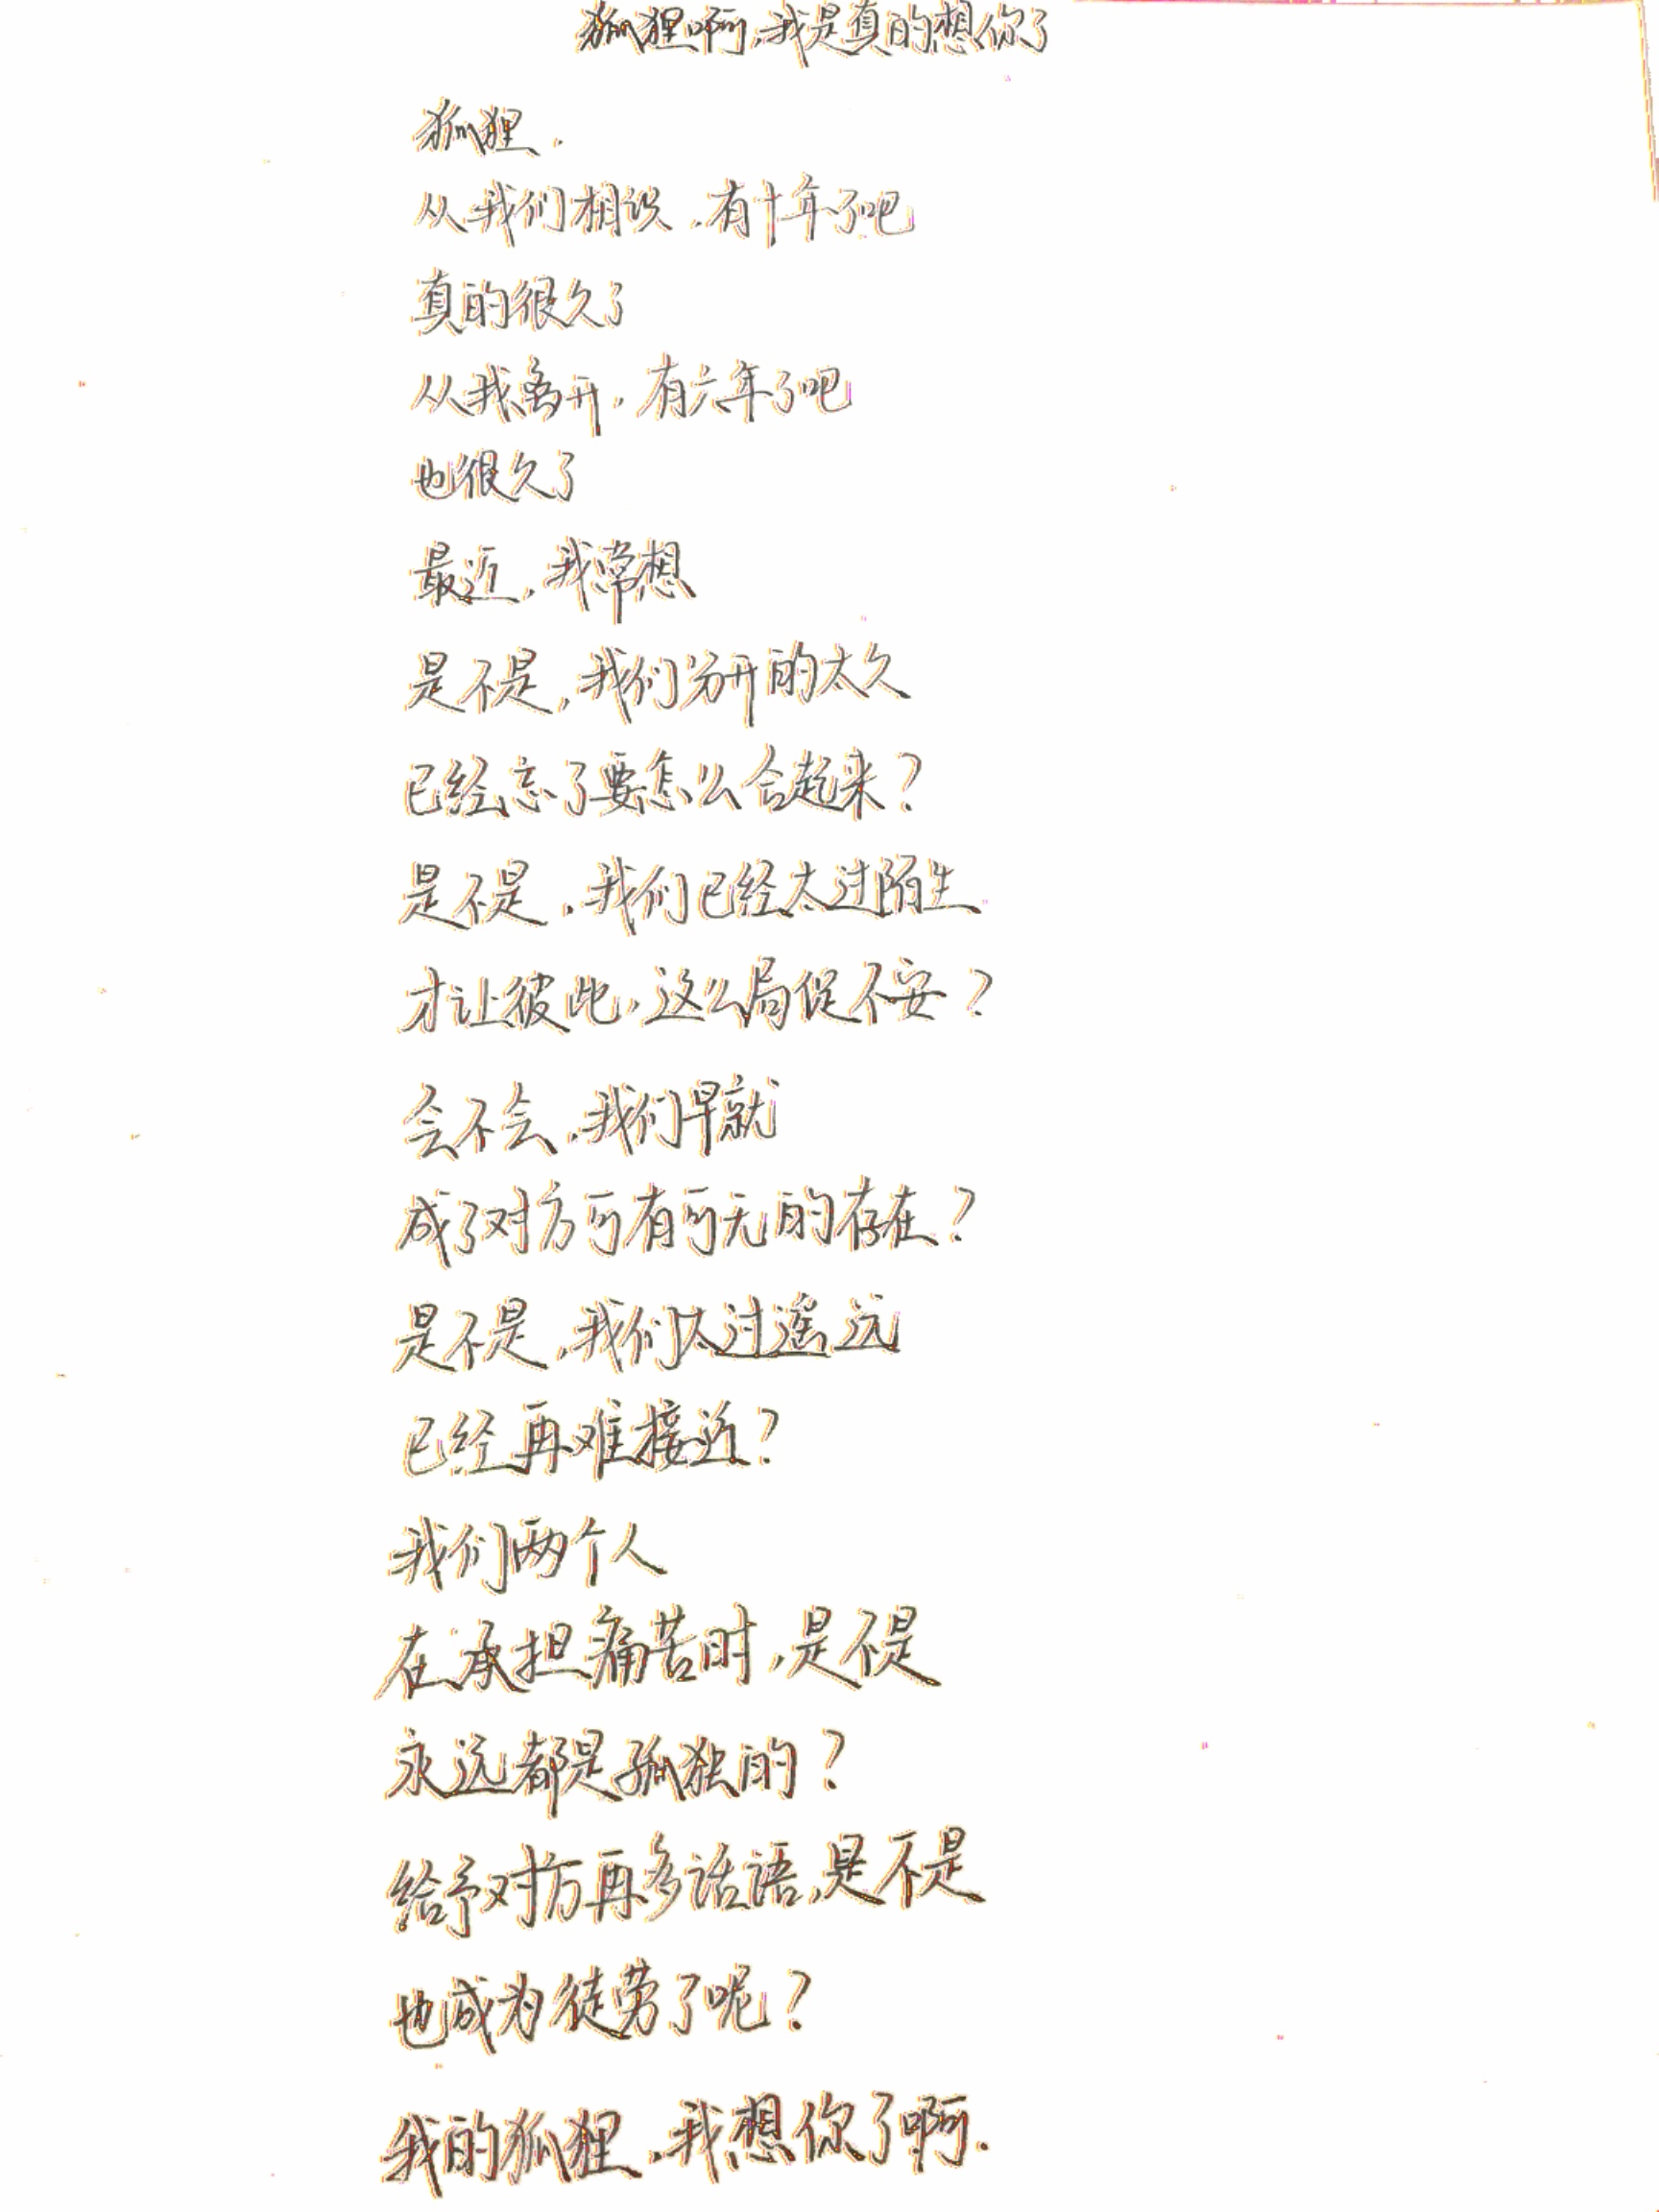 狐狸啊,我是真的想你了
狐狸.
从我们相识,有十年了吧
真的很久了
从我离开,有六年了吧
也很久了
最近,我常想
是不是,我们分开的太久
已经忘了要怎么合起来?
是不是,我们已经太过陌生
才让彼此,这么局促不安?
会不会,我们早就
成了对方可有可无的存在?
是不是,我们太过遥远
已经再难接近?
我们两个人
在承担痛苦时,是不是
永远都是孤独的?
给予对方再多话语,是不是
也成为徒劳了呢?
我的狐狸,我想你了啊.